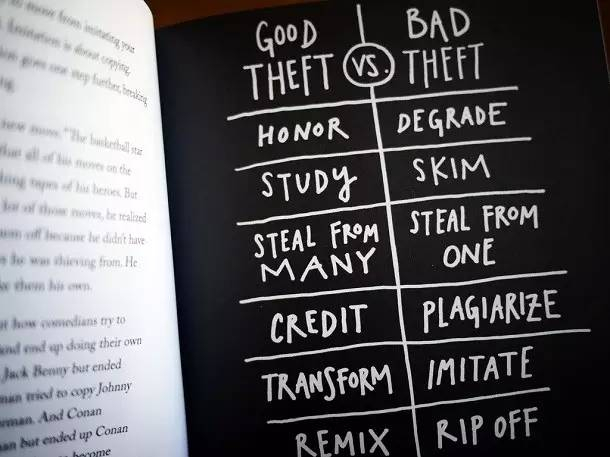 to move from imitating your
Imitation is about copying.
goes one step further, breaking
new move." The basketball star
that all of his moves on the
tapes of his heroes. But
lot of those moves, he realized
off because he didn't have
he was thieving from. He
them his own.
how comedians try to
and end up doing their own
Jack Benny but ended
tried to copy Johnny
And Conan
but ended up Conan
become
GOOD THEFT VS. BAD THEFT
HONOR DEGRADE
STUDY SKIM
STEAL FROM MANY STEAL FROM ONE
CREDIT PLAGIARIZE
TRANSFORM IMITATE
REMIX RIP OFF